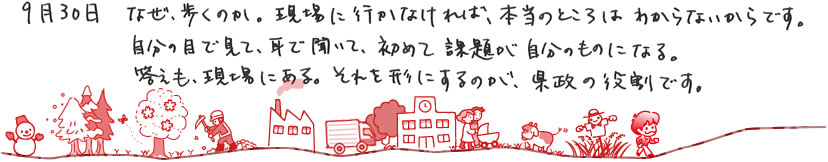 9月30日 なぜ、歩くのか。現場に行かなければ、本当のところは わからないからです。
自分の目で見て、耳で聞いて、初めて課題が自分のものになる。
答えも、現場にある。それを形にするのが、県政の役割です。